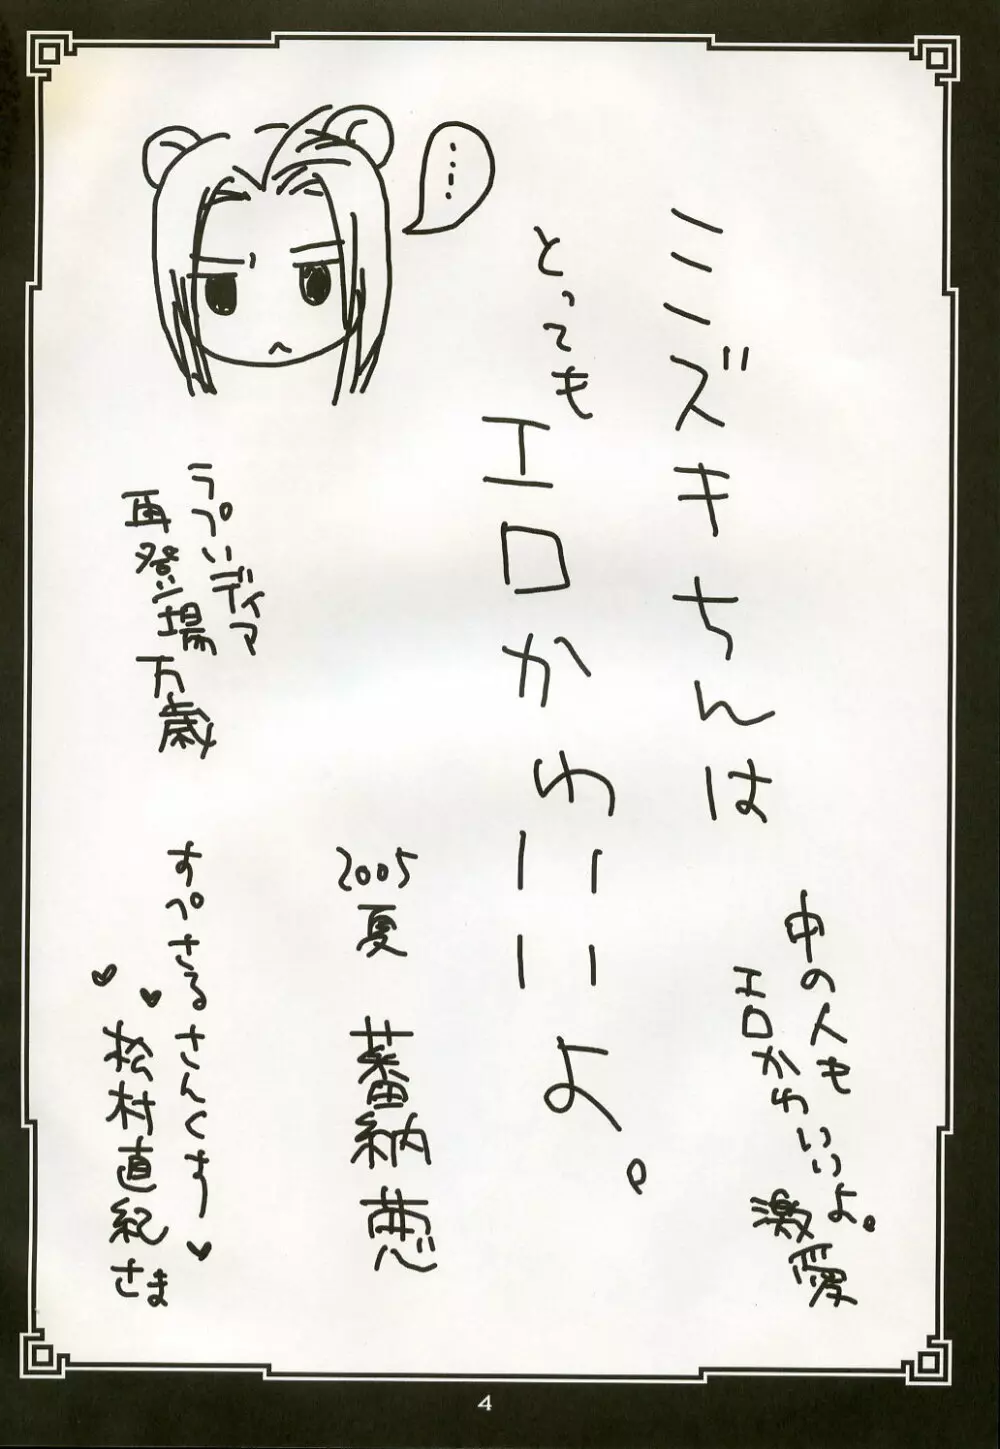 ミズキちんは
とっても
エロかわいいよ。
中の人も
エロかわいいよ。
激愛
……
2005夏 蕃納葱
ラプいディア
再登場万歳
すぺさるさんくす♥
♥♥松村直紀さま
4